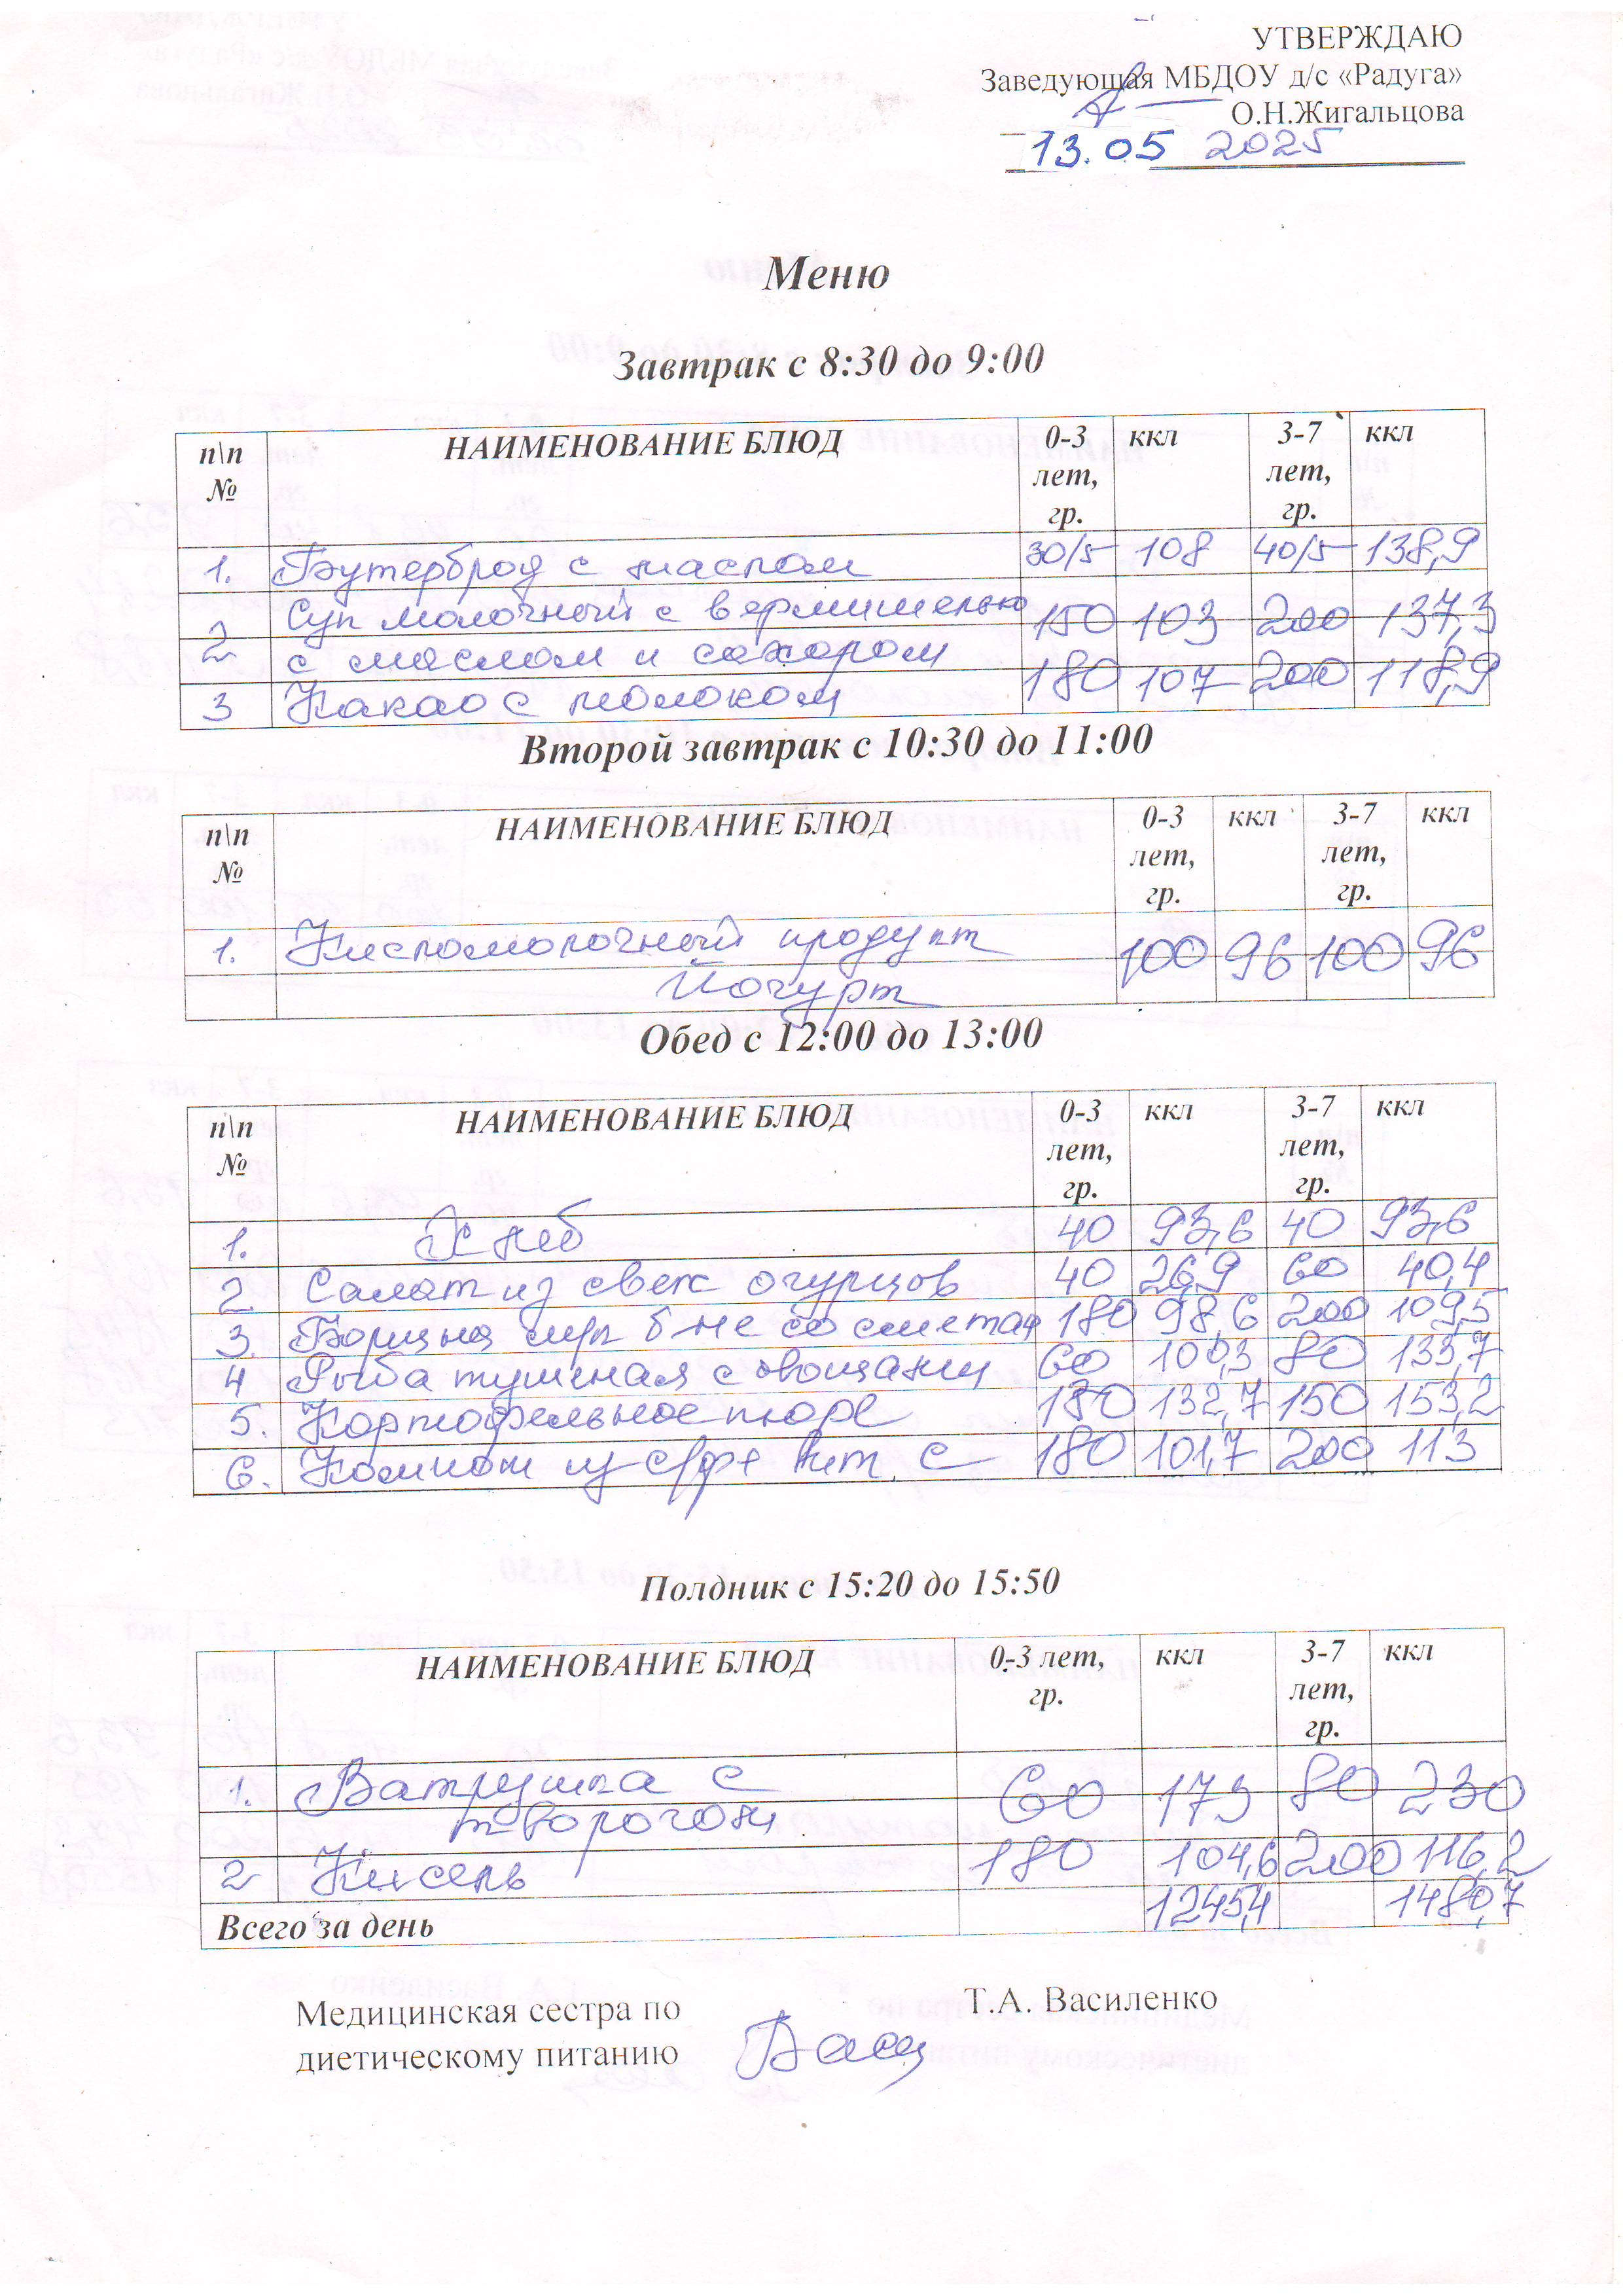 УТВЕРЖДАЮ
Заведующая МБДОУ д/с «Радуга»
О.Н.Жигальцова
13.05 2025
Меню
Завтрак с 8:30 до 9:00
п\п № НАИМЕНОВАНИЕ БЛЮД 0-3 лет, гр. ккл 3-7 лет, гр. ккл
1. Бутерброд с маслом 30/5 108 40/5 138,9
2 Суп молочный с вермишелью 150 103 200 137,3
с маслом и сахаром
3 Какао с молоком 180 107 200 118,9
Второй завтрак с 10:30 до 11:00
п\п № НАИМЕНОВАНИЕ БЛЮД 0-3 лет, гр. ккл 3-7 лет, гр. ккл
1. Кисломолочный продукт 100 96 100 96
Йогурт
Обед с 12:00 до 13:00
п\п № НАИМЕНОВАНИЕ БЛЮД 0-3 лет, гр. ккл 3-7 лет, гр. ккл
1. Хлеб 40 93,6 40 93,6
2. Салат из свеж огурцов 40 26,9 60 40,4
3. Борщ на б-не со сметан 180 98,6 200 109,5
4 Рыба тушеная с овощами 60 100,3 80 133,7
5. Картофельное пюре 180 132,7 150 153,2
6. Компот из с/фр вит. С 180 101,7 200 113
Полдник с 15:20 до 15:50
НАИМЕНОВАНИЕ БЛЮД 0-3 лет, гр. ккл 3-7 лет, гр. ккл
1. Ватрушка с 60 173 80 230
творогом
2 Кисель 180 104,6 200 116,2
Всего за день 1245,4 1480,7
Медицинская сестра по Т.А. Василенко
диетическому питанию